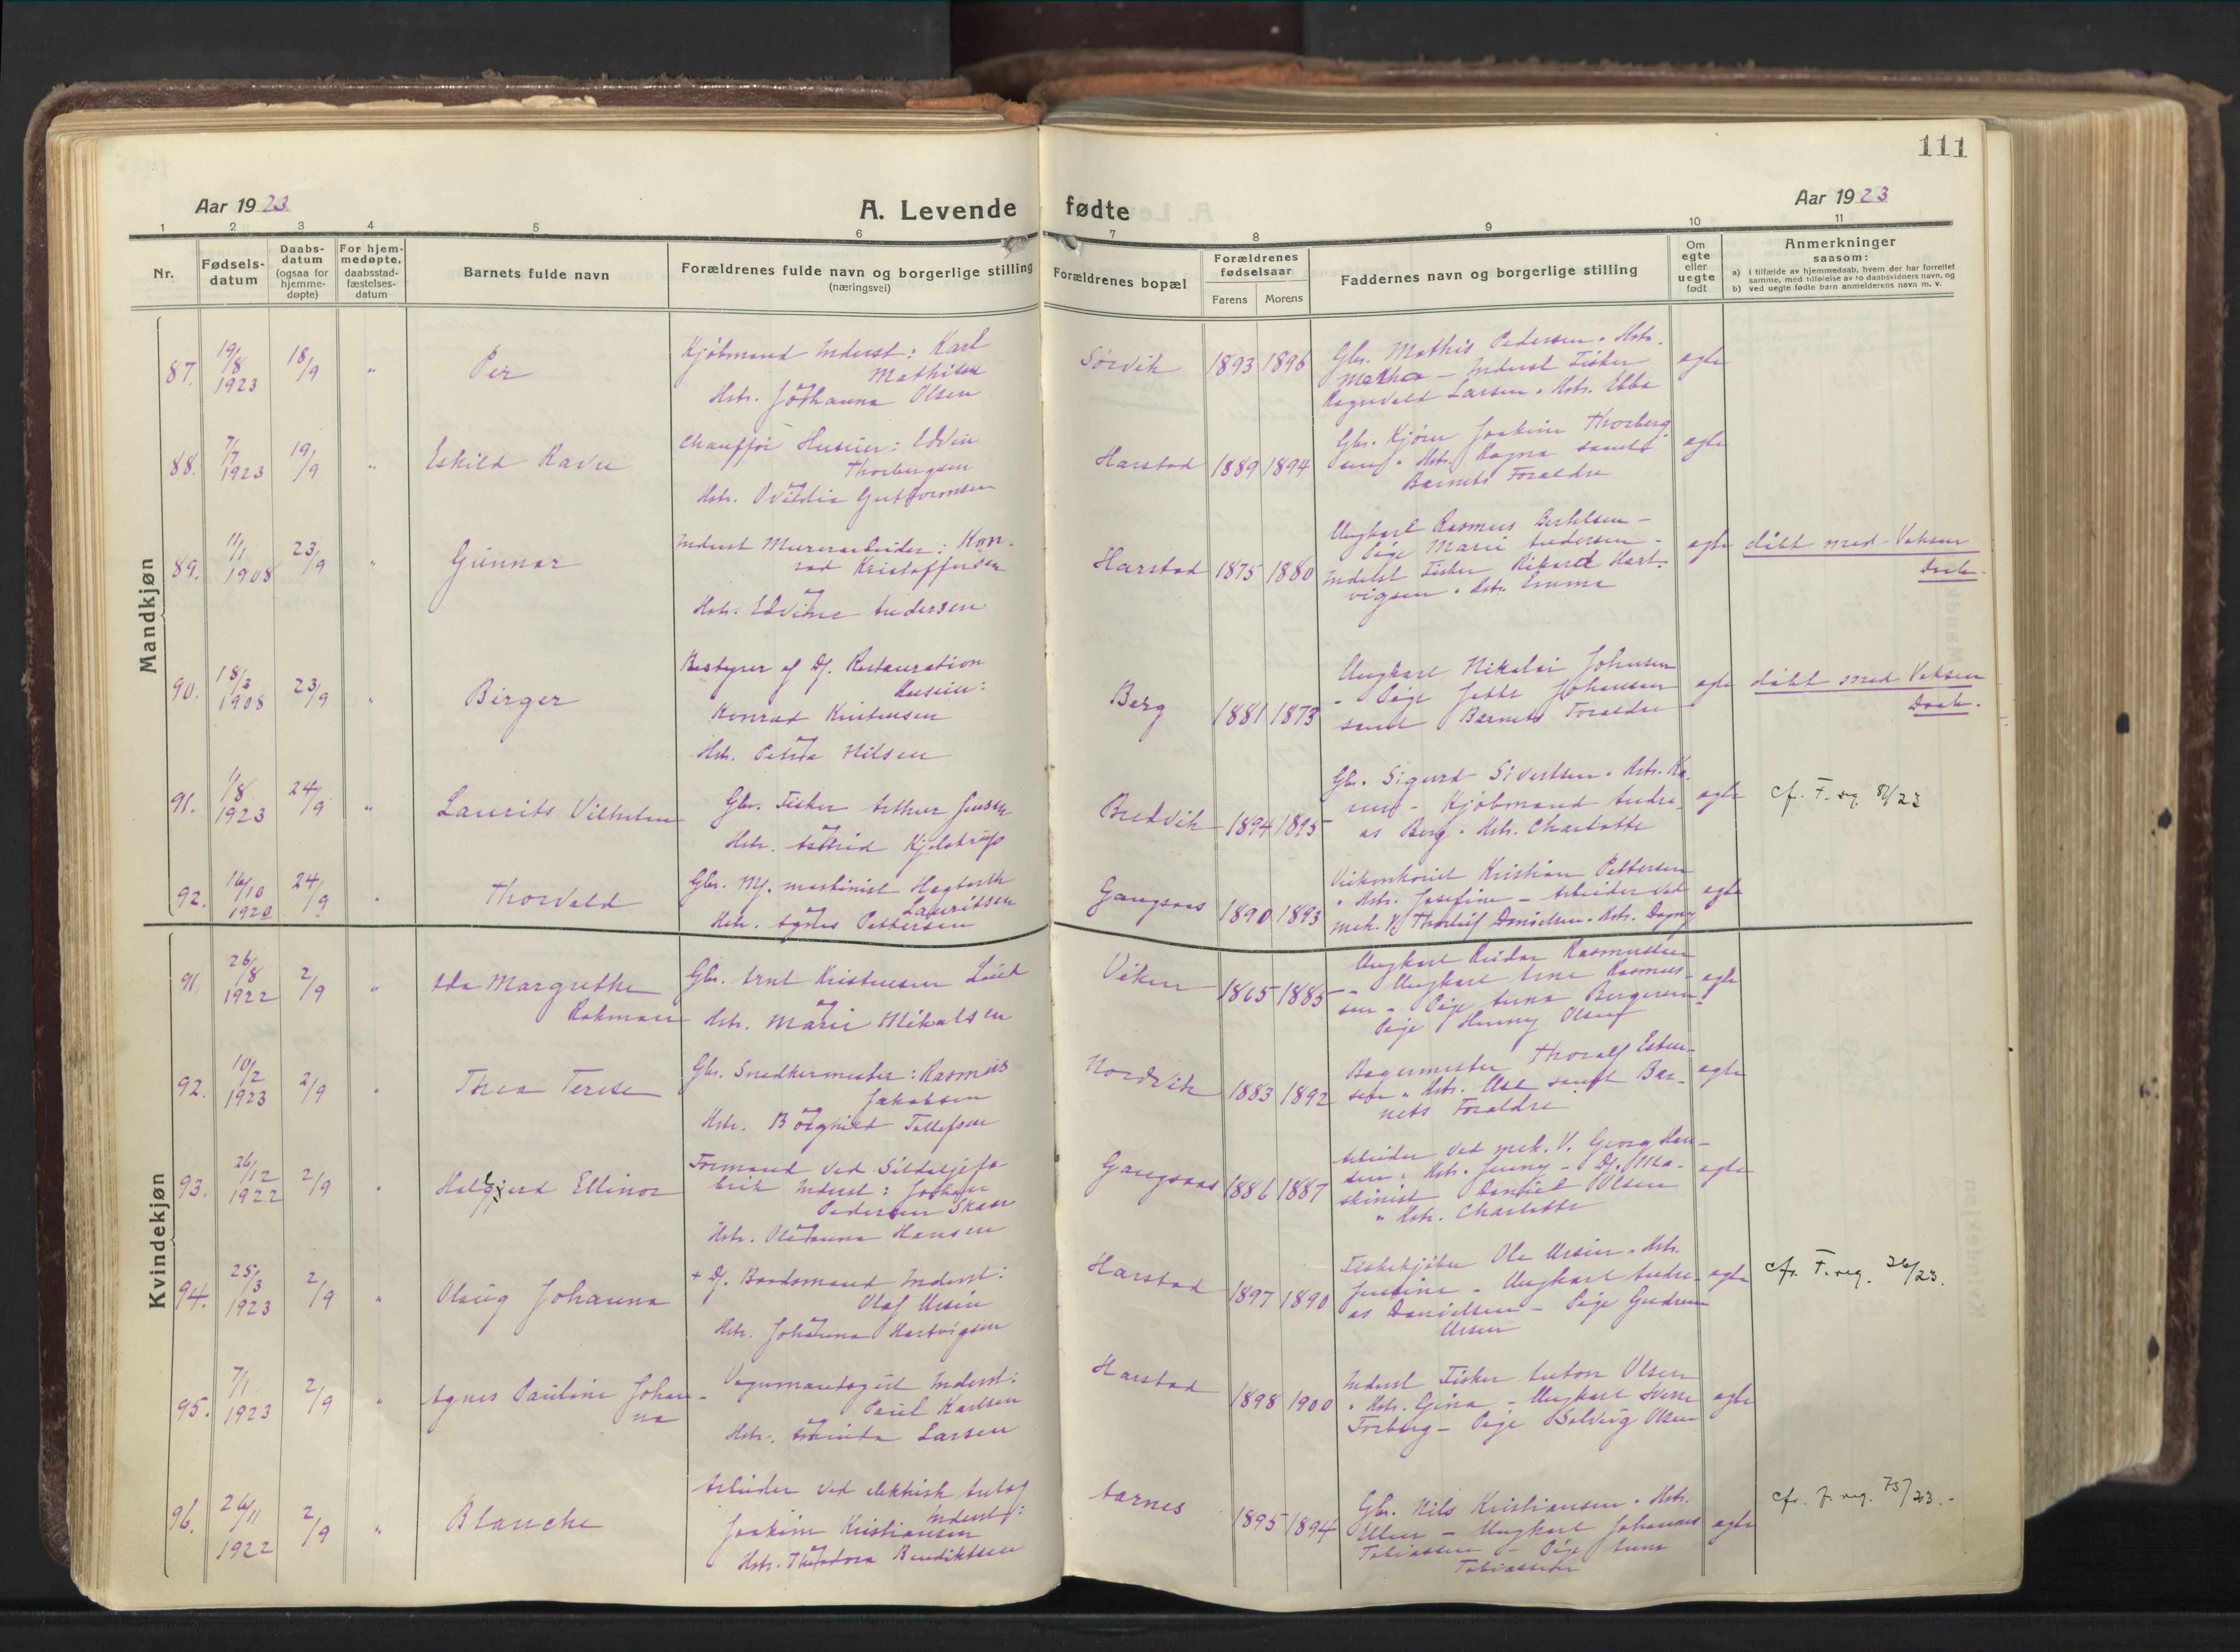 111
Aar 1923
A. Levende fødte
Aar 1923
1 2 3 4 5 6 7 8 9 10 11
Nr.
Fødsels-
datum
Daabs-
datum
(ogsaa for
hjemme-
døpte)
For hjem-
medøpte,
daabsstad-
fæstelses-
datum
Barnets fulde navn
Forældrenes fulde navn og borgerlige stilling
(næringsvei)
Forældrenes bopæl
Forældrenes
fødselsaar
Farens Morens
Faddernes navn og borgerlige stilling
Om
egte
eller
uegte
født
Anmerkninger
saasom:
a) i tilfælde av hjemmedaab, hvem der har forrettet
samme, med tilføielse av to daabsvidners navn, og
b) ved uegte fødte barn anmelderens navn m. v.
Mandkjøn
87. 19/8 1923 18/9 " Per
Kjøbmand Inderst: Karl
Mathisen
Hstr. Johanna Olsen
Sørvik 1893 1896
Gbr. Mathis Pedersen " Hstr.
Metha - Inderst Fisker
Ragnvald Larsen " Hstr. Ebba
egte
88. 7/7 1923 19/9 " Eskild Ravn
Chauffør Huseier: Edvin
Thorbergsen
Hstr. Ovidia Guttormsen
Harstad 1889 1894
Gbr. Kjøren Joakim Thorberg
sen " Hstr. Ragna samt
Barnets Forældre
egte
89. 11/1 1908 23/9 " Gunnar
Inderst Murerarbeider: Kon-
rad Kristoffersen
Hstr. Edvine Andersen
Harstad 1875 1880
Ungkarl Rasmus Berthelsen -
Pige Marie Andersen -
Inderst Fisker Rikard Hart-
vigsen " Hstr. Emma
egte
døbt med Voksen
Daab.
90. 18/3 1908 23/9 " Birger
Bestyrer af Df. Restauration
Huseier:
Konrad Kristensen
Hstr. Petra Nilsen
Berg 1881 1873
Ungkarl Nikolai Johnsen
- Pige Jette Johansen
samt Barnets Forældre
egte
døbt med Voksen
Daab.
91. 1/8 1923 24/9 " Laurits Vilhelm
Gbr. Fisker Arthur Jensen
Hstr. Astrid Kjelstrup
Bredvik 1894 1895
Gbr. Sigurd Sivertsen " Hstr. Ka
- Kjøbmand Andre-
as Berg " Hstr. Charlotte
egte
cf. F. reg. 81/23
92. 16/10 1920 24/9 " Thorvald
Gbr. Mf. maskinist Hagbarth
Lauritsen
Hstr. Agnes Pettersen
Gangsaas 1890 1893
Kristian Pettersen
" Hstr. Josefine - Arbeider ved
mek. V. Thorleif Danielsen " Hstr. Dagny
egte
Kvindekjøn
91. 26/8 1922 2/9 " Ada Margrethe
Rokman
Gbr. Arnt Kristensen Leid
Hstr. Marie Mikalsen
Viken 1865 1885
Ungkarl Reidar Rasmussen
- Ungkarl Arne Rasmus-
sen - Pige Anna Bergersen
Pige Henny Olsen
egte
92. 10/2 1923 2/9 " Thea Terese
Gbr. Snedkermester: Rasmus
Jakobsen
Hstr. Borghild Tollefsen
Nordvik 1883 1892
Bagermester Thoralf Esben-
sen " Hstr. Ase samt Bar-
nets Forældre
egte
93. 26/12 1922 2/9 " Halgjerd Ellinor
Formand ved Sildoljefa-
brik Inderst: Johan
Pedersen Skaar
Hstr. Oleanna Hansen
Gangsaas 1886 1887
Arbeider ved mek. V. Georg Han-
sen " Hstr. Jenny - Df. Ma-
skinist Daniel Olsen
" Hstr. Charlotte
egte
94. 25/3 1923 2/9 " Olaug Johanna
+ Df. Baadsmand Inderst:
Olaf Ursin
Hstr. Johanna Hartvigsen
Harstad 1897 1890
Fiskekjøber Ole Ursin " Hstr.
Justine - Ungkarl Andre-
as Danielsen - Pige Gudrun
Ursin
egte
cfr. F. reg. 26/23.
95. 7/1 1923 2/9 " Agnes Pauline Johan-
na
Vognmand Inderst:
Paul Karlsen
Hstr. Larsen
Harstad 1898 1900
Inderst Fisker Anton Olsen
" Hstr. Gina - Ungkarl Sverre
Forberg - Pige Solveig Olsen
egte
96. 26/11 1922 2/9 " Blanche
Arbeider ved elektrisk Anlæg
Inderst:
Joakim Kristiansen
Hstr. Theodora Benediktsen
Aarnes 1895 1894
Gbr. Nils Kristiansen " Hstr.
Ellen - Ungkarl Johannes
Tobiassen - Pige Anna
Tobiassen
egte
cfr. F. reg. 75/23.-